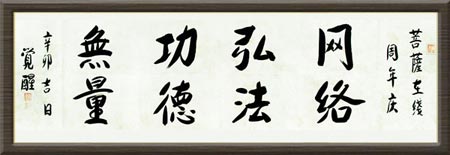 菩萨在线
周年庆
网络
弘法
功德
無量
辛卯吉日
觉醒